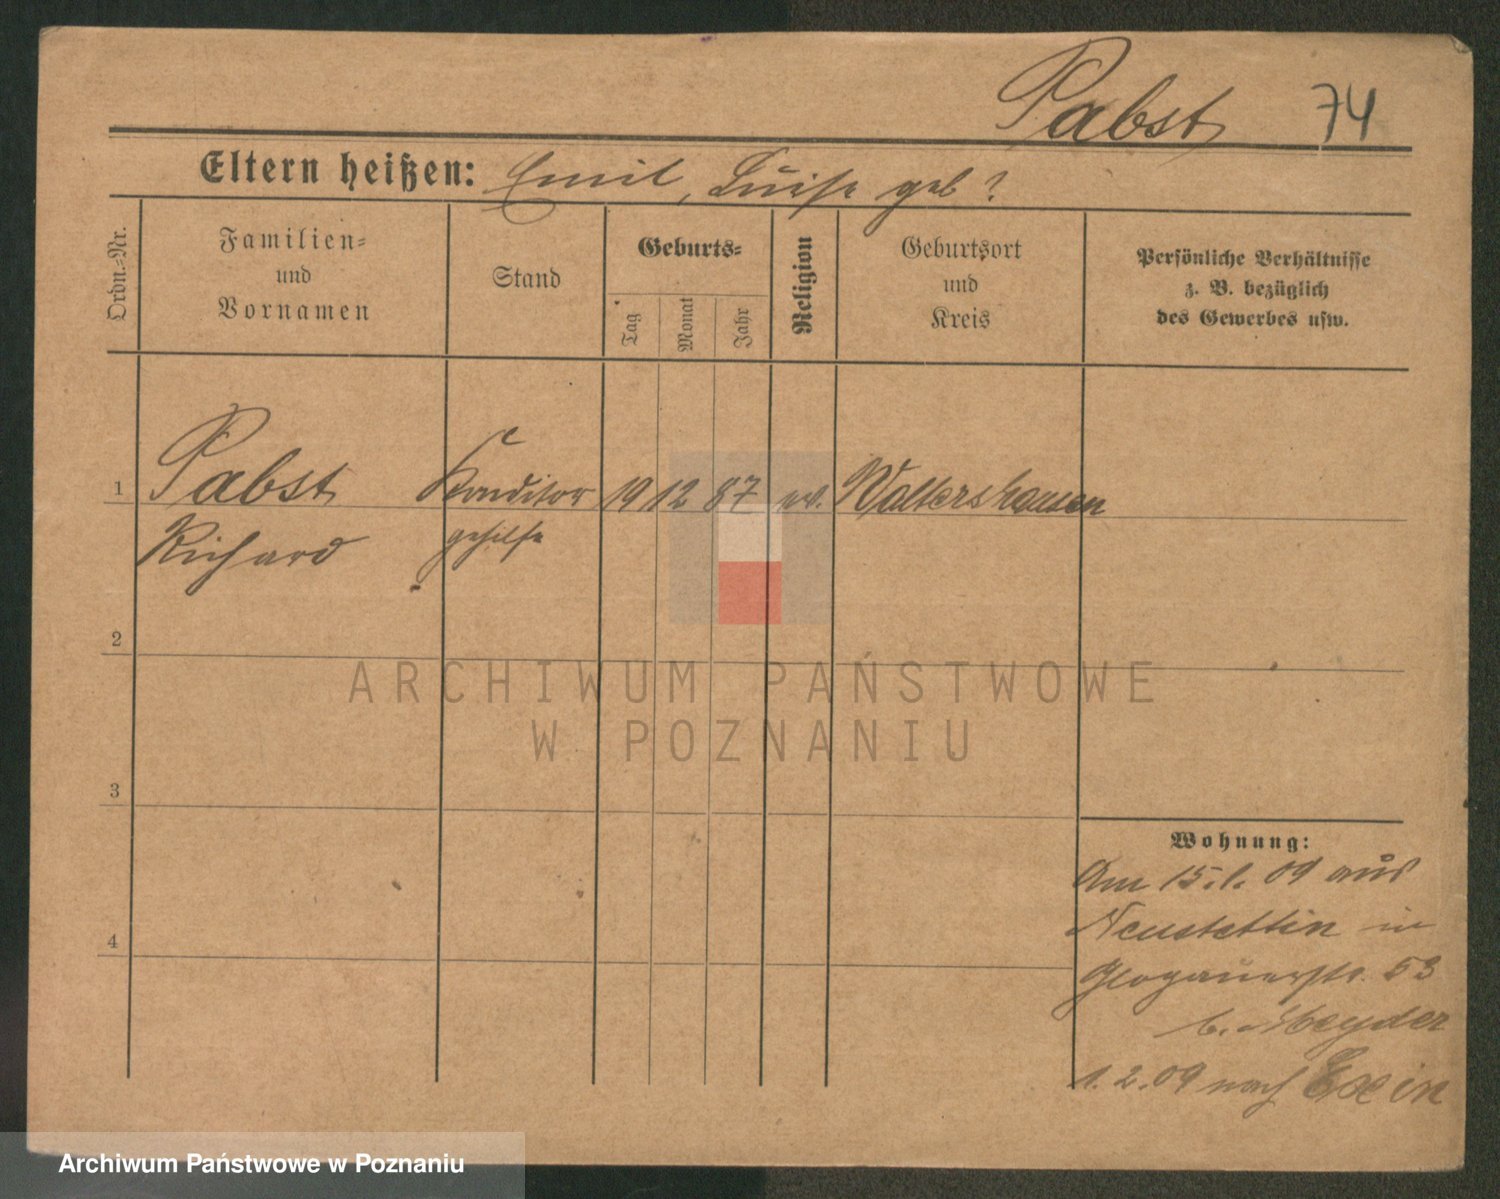 Pabst 74
Eltern heißen: Emil, Luise geb?
Ordn.-Nr.
Familien-
und
Vornamen
Stand
Geburts-
Tag
Monat
Jahr
Religion
Geburtsort
und
Kreis
Persönliche Verhältnisse
z. B. bezüglich
des Gewerbes usw.
1 Pabst Konditor 19 12 87 ev. Waltershausen
Richard gehilfe
2
3
4
Wohnung:
Am 15.1.09 aus
Neustettin in
Glogauerstr. 53
b. Heyder
1.2.09 nach Exin
ARCHIWUM PAŃSTWOWE
W POZNANIU
Archiwum Państwowe w Poznaniu